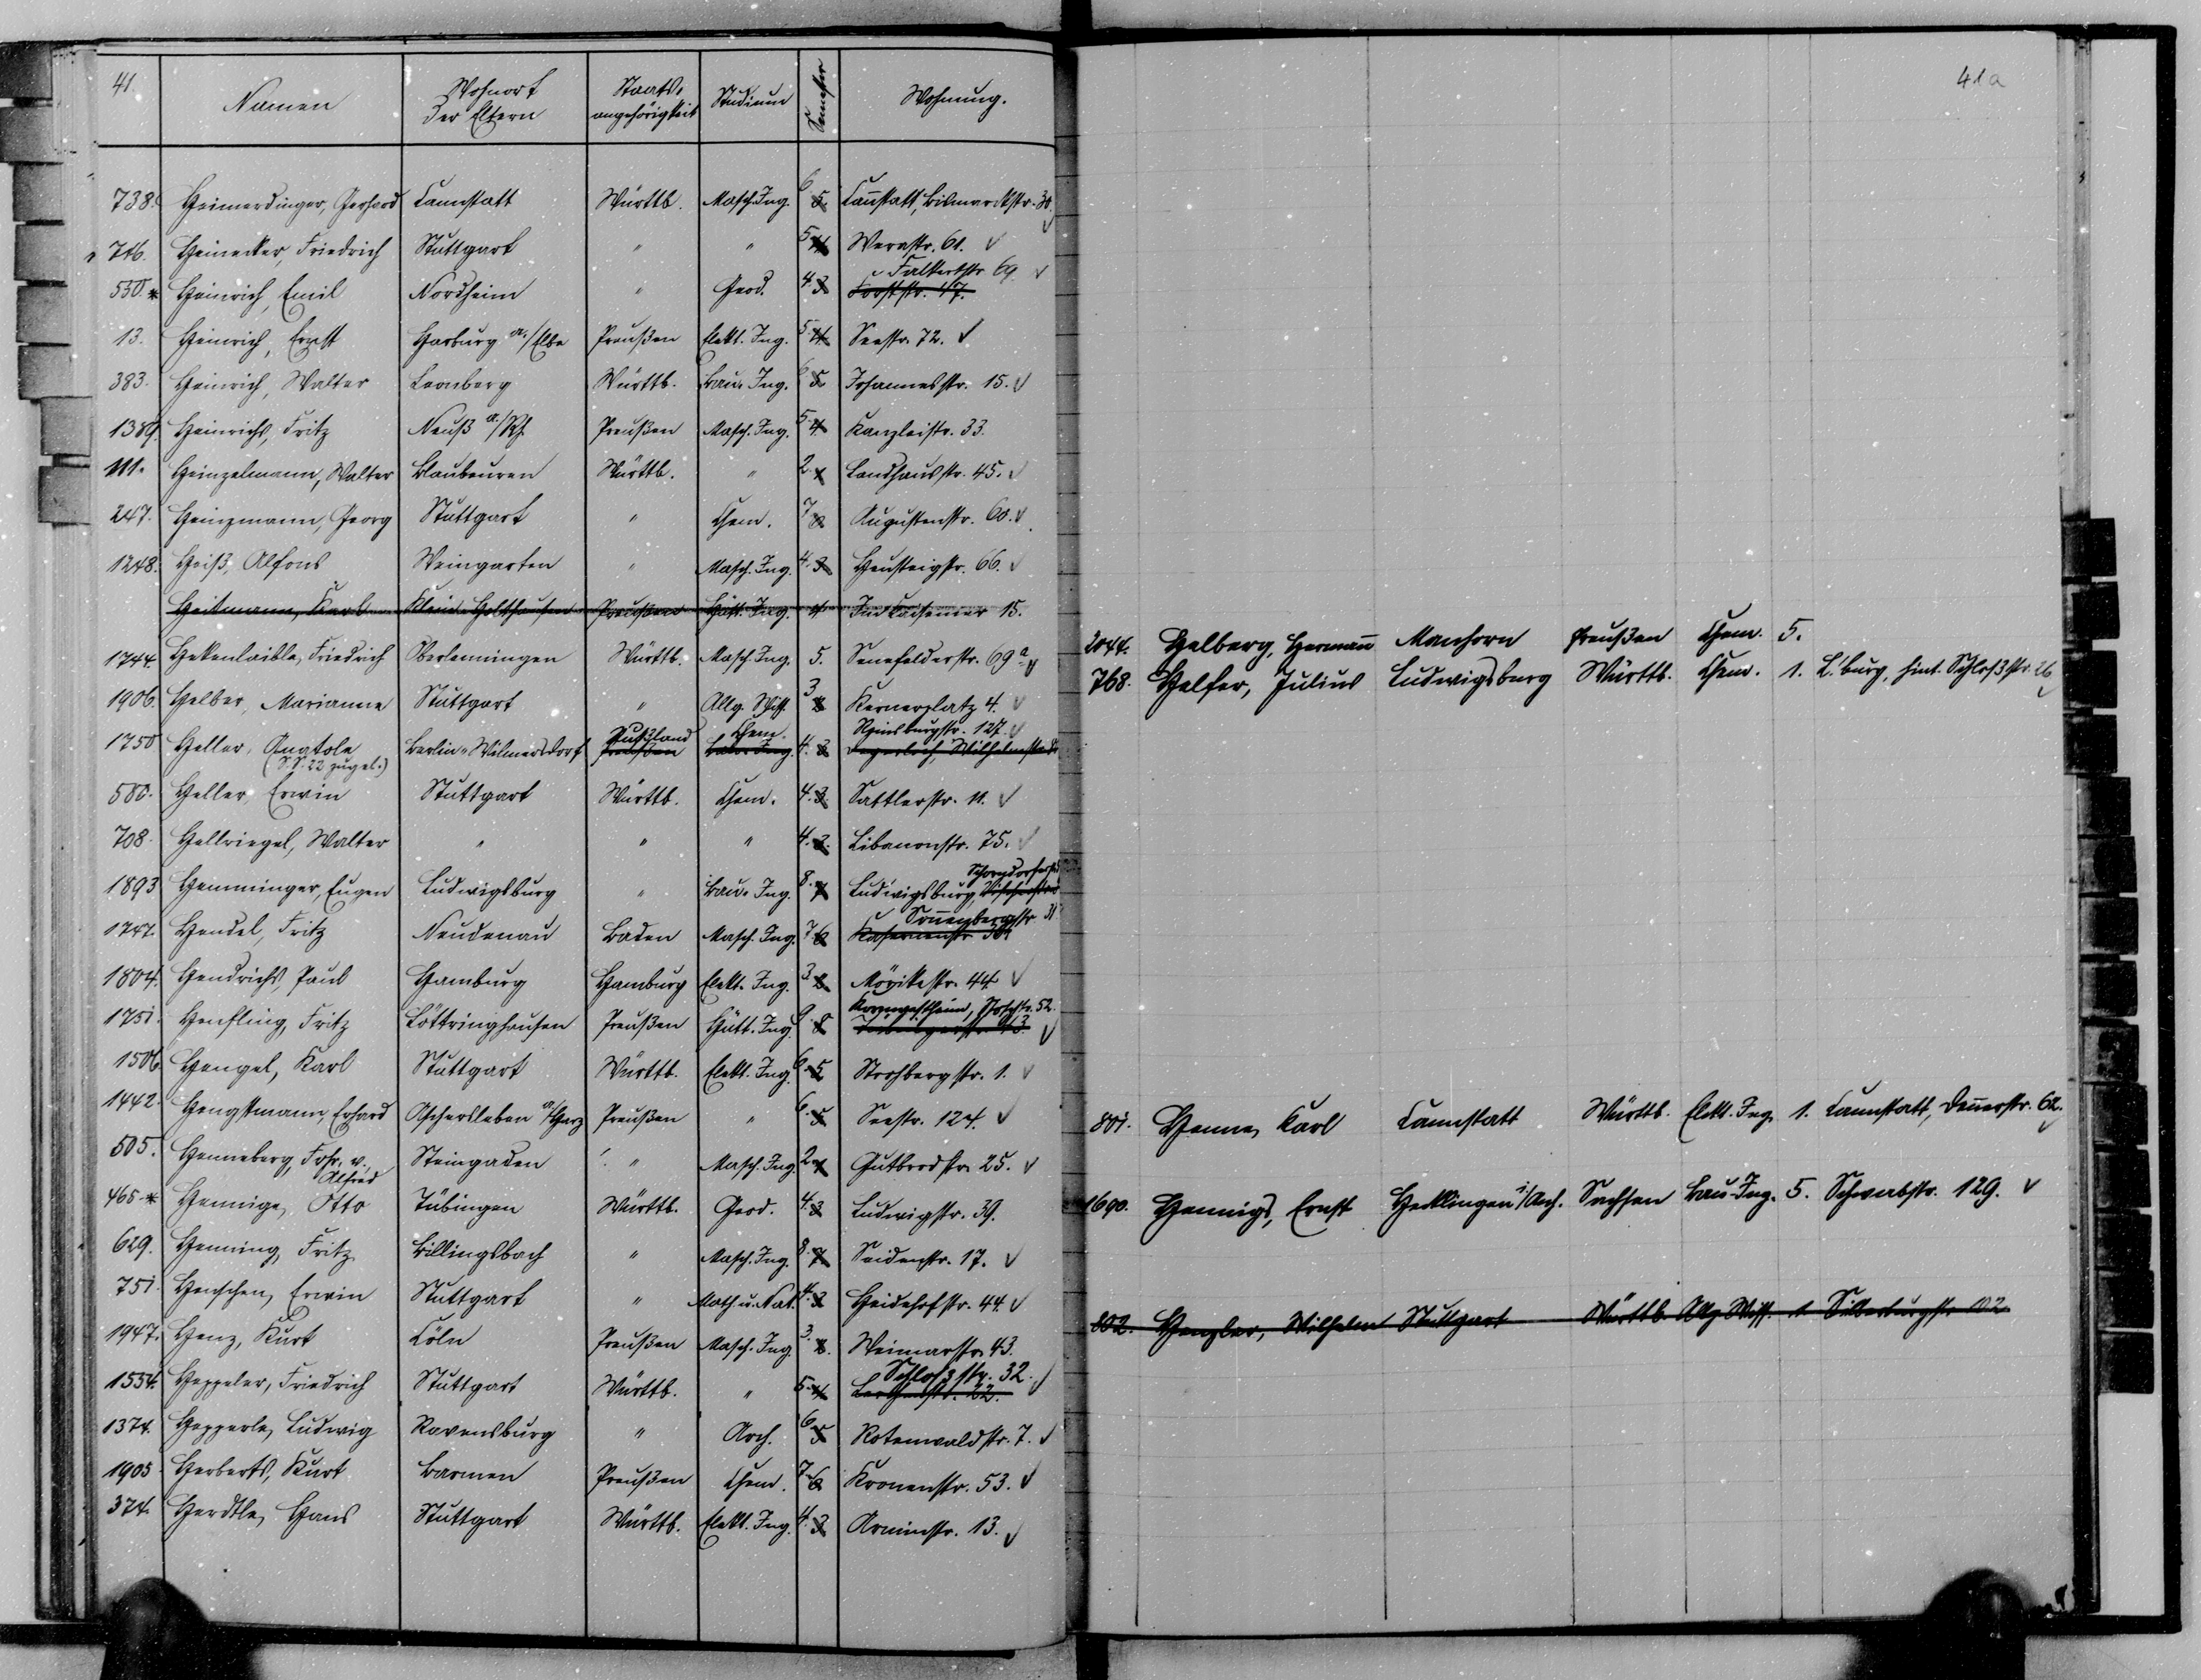 41
Namen Wohnort der Eltern Staatsangehörigkeit Studium Semester Wohnung.
738. Heimerdinger, Gerhard Cannstatt Württb. Masch. Ing. 6 5. Cannstatt, Bismarckstr. 30.
746. Heinecker, Friedrich Stuttgart " " 5 4 Werastr. 61. ✓
Falkertstr. 69. ✓
550.* Heinrich, Emil Nordheim " Geod. 4. 3 Forststr. 47.
13. Heinrich, Ernst Harburg a./Elbe Preußen Elekt. Ing. 5. 4. Seestr. 72. ✓
383. Heinrich, Walter Leonberg Württb. Bau-Ing. 6 5 Johannesstr. 15. ✓
1389. Heinrichs, Fritz Neuß a./Rh. Preußen Masch. Ing. 5. 4 Kanzleistr. 33.
111. Heinzelmann, Walter Blaubeuren Württb. " 2. 1 Landhausstr. 45. ✓
247. Heinzmann, Georg Stuttgart " Chem. 7 6 Augustenstr. 60. ✓
1248. Heiß, Alfons Weingarten " Masch. Ing. 4. 3 Heusteigstr. 66. ✓
Heitmann, Karl Klein-Holthausen Preußen Hütt. Ing. 4 15.
1744. Hekenlaible, Friedrich Oberlenningen Württb. Masch. Ing. 5. Senefelderstr. 69a ✓
1906. Helber, Marianne Stuttgart " Allg. Wiss. 3 2 Kernerplatz 4. ✓
Rußland Chem. Reinsburgstr. 127. ✓
1750 Heller, Anatole Berlin-Wilmersdorf Preußen 4. 3 Degerloch, Wilhelmstr.
(S.S. 22 zugel.)
580. Heller, Erwin Stuttgart Württb. Chem. 4. 3. Sattlerstr. 11. ✓
708. Hellriegel, Walter " " " 4. 3. Libanonstr. 75. ✓
Schorndorferstr.
1893 Hemminger, Eugen Ludwigsburg " Bau-Ing. 8. 7 Ludwigsburg,
Sonnenbergstr. 31
1747. Hendel, Fritz Neudenau Baden Masch. Ing. 7 6 Kasernenstr.
1804. Hendrichs, Paul Hamburg Hamburg Elekt. Ing. 3 2 Mörikestr. 44 ✓
Kornwestheim, 52.
1751. Henfling, Fritz Löttringhausen Preußen Hütt. Ing. 9. 8 ✓
1506. Hengel, Karl Stuttgart Württb. Elekt. Ing. 6. 5 Strohbergstr. 1. ✓
1442. Hengstmann, Erhard Aschersleben a/Harz Preußen " 6. 5 Seestr. 124. ✓
505. Henneberg, Frhr. v., Steingaden " Masch. Ing. 2. 1 Gutbrodstr. 25. ✓
Alfred
465.* Hennige, Otto Tübingen Württb. Geod. 4. 3 Ludwigstr. 39.
629. Henning, Fritz Billingsbach " Masch. Ing. 8. 7. Seidenstr. 17. ✓
751. Henschen, Erwin Stuttgart " Math. u. Nat. 4. 3 Heidehofstr. 44. ✓
1947. Henz, Kurt Cöln Preußen Masch. Ing. 3. 2. Weimarstr. 43.
Schloßstr. 32. ✓
1554. Heppeler, Friedrich Stuttgart Württb. " 5. 4 22.
1374. Hepperle, Ludwig Ravensburg " Arch. 6 5 Rotenwaldstr. 7. ✓
1905 Herberts, Kurt Barmen Preußen Chem. 7. 6 Kronenstr. 53. ✓
374. Herdtle, Hans Stuttgart Württb. Elekt. Ing. 4. 3 Arminstr. 13. ✓
41a
2044. Helberg, Hermann Manhorn Preußen Chem. 5.
768. Helfer, Julius Ludwigsburg Württb. Chem. 1. L'burg, hint. Schloßstr. 26
801. Henne, Karl Cannstatt Württb. Elekt. Ing. 1. Cannstatt, 62.
1690. Hennigs, Ernst Hecklingen i/Anh. Sachsen Bau-Ing. 5. Schwabstr. 129. ✓
802. Henzler, Wilhelm Stuttgart Württb. Allg. Wiss. 1 Silberburgstr. 102.